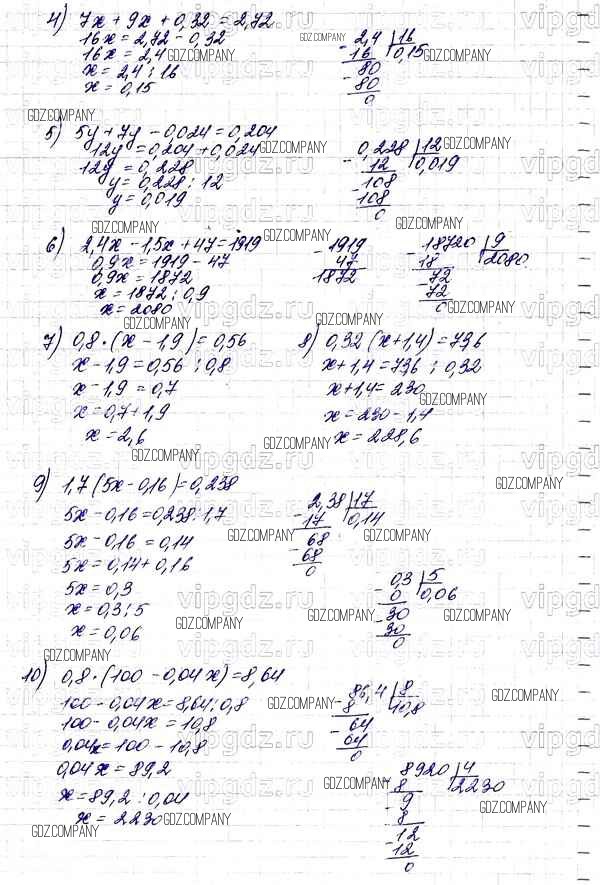 4) 7x + 9x + 0,32 = 2,72
16x = 2,72 - 0,32
16x = 2,4
x = 2,4 : 16
x = 0,15
2,4 | 16
- 16 0,15
80
- 80
0
5) 5y + 7y - 0,024 = 0,204
12y = 0,204 + 0,024
12y = 0,228
y = 0,228 : 12
y = 0,019
0,228 | 12
- 12 0,019
108
- 108
0
6) 2,4x - 1,5x + 47 = 1919
0,9x = 1919 - 47
0,9x = 1872
x = 1872 : 0,9
x = 2080
- 1919
47
1872
18720 | 9
- 18 2080
72
- 72
0
7) 0,8 · (x - 1,9) = 0,56
x - 1,9 = 0,56 : 0,8
x - 1,9 = 0,7
x = 0,7 + 1,9
x = 2,6
8) 0,32 (x + 1,4) = 736
x + 1,4 = 736 : 0,32
x + 1,4 = 230
x = 230 - 1,4
x = 228,6
9) 1,7 (5x - 0,16) = 0,238
5x - 0,16 = 0,238 : 1,7
5x - 0,16 = 0,14
5x = 0,14 + 0,16
5x = 0,3
x = 0,3 : 5
x = 0,06
2,38 | 17
- 17 0,14
68
- 68
0
0,3 | 5
- 0 0,06
30
- 30
0
10) 0,8 · (100 - 0,04x) = 8,64
100 - 0,04x = 8,64 : 0,8
100 - 0,04x = 10,8
0,04x = 100 - 10,8
0,04x = 89,2
x = 89,2 : 0,04
x = 2230
86,4 | 8
- 8 10,8
64
- 64
0
8920 | 4
- 8 2230
9
- 8
12
- 12
0
GDZ.COMPANY
vipgdz.ru